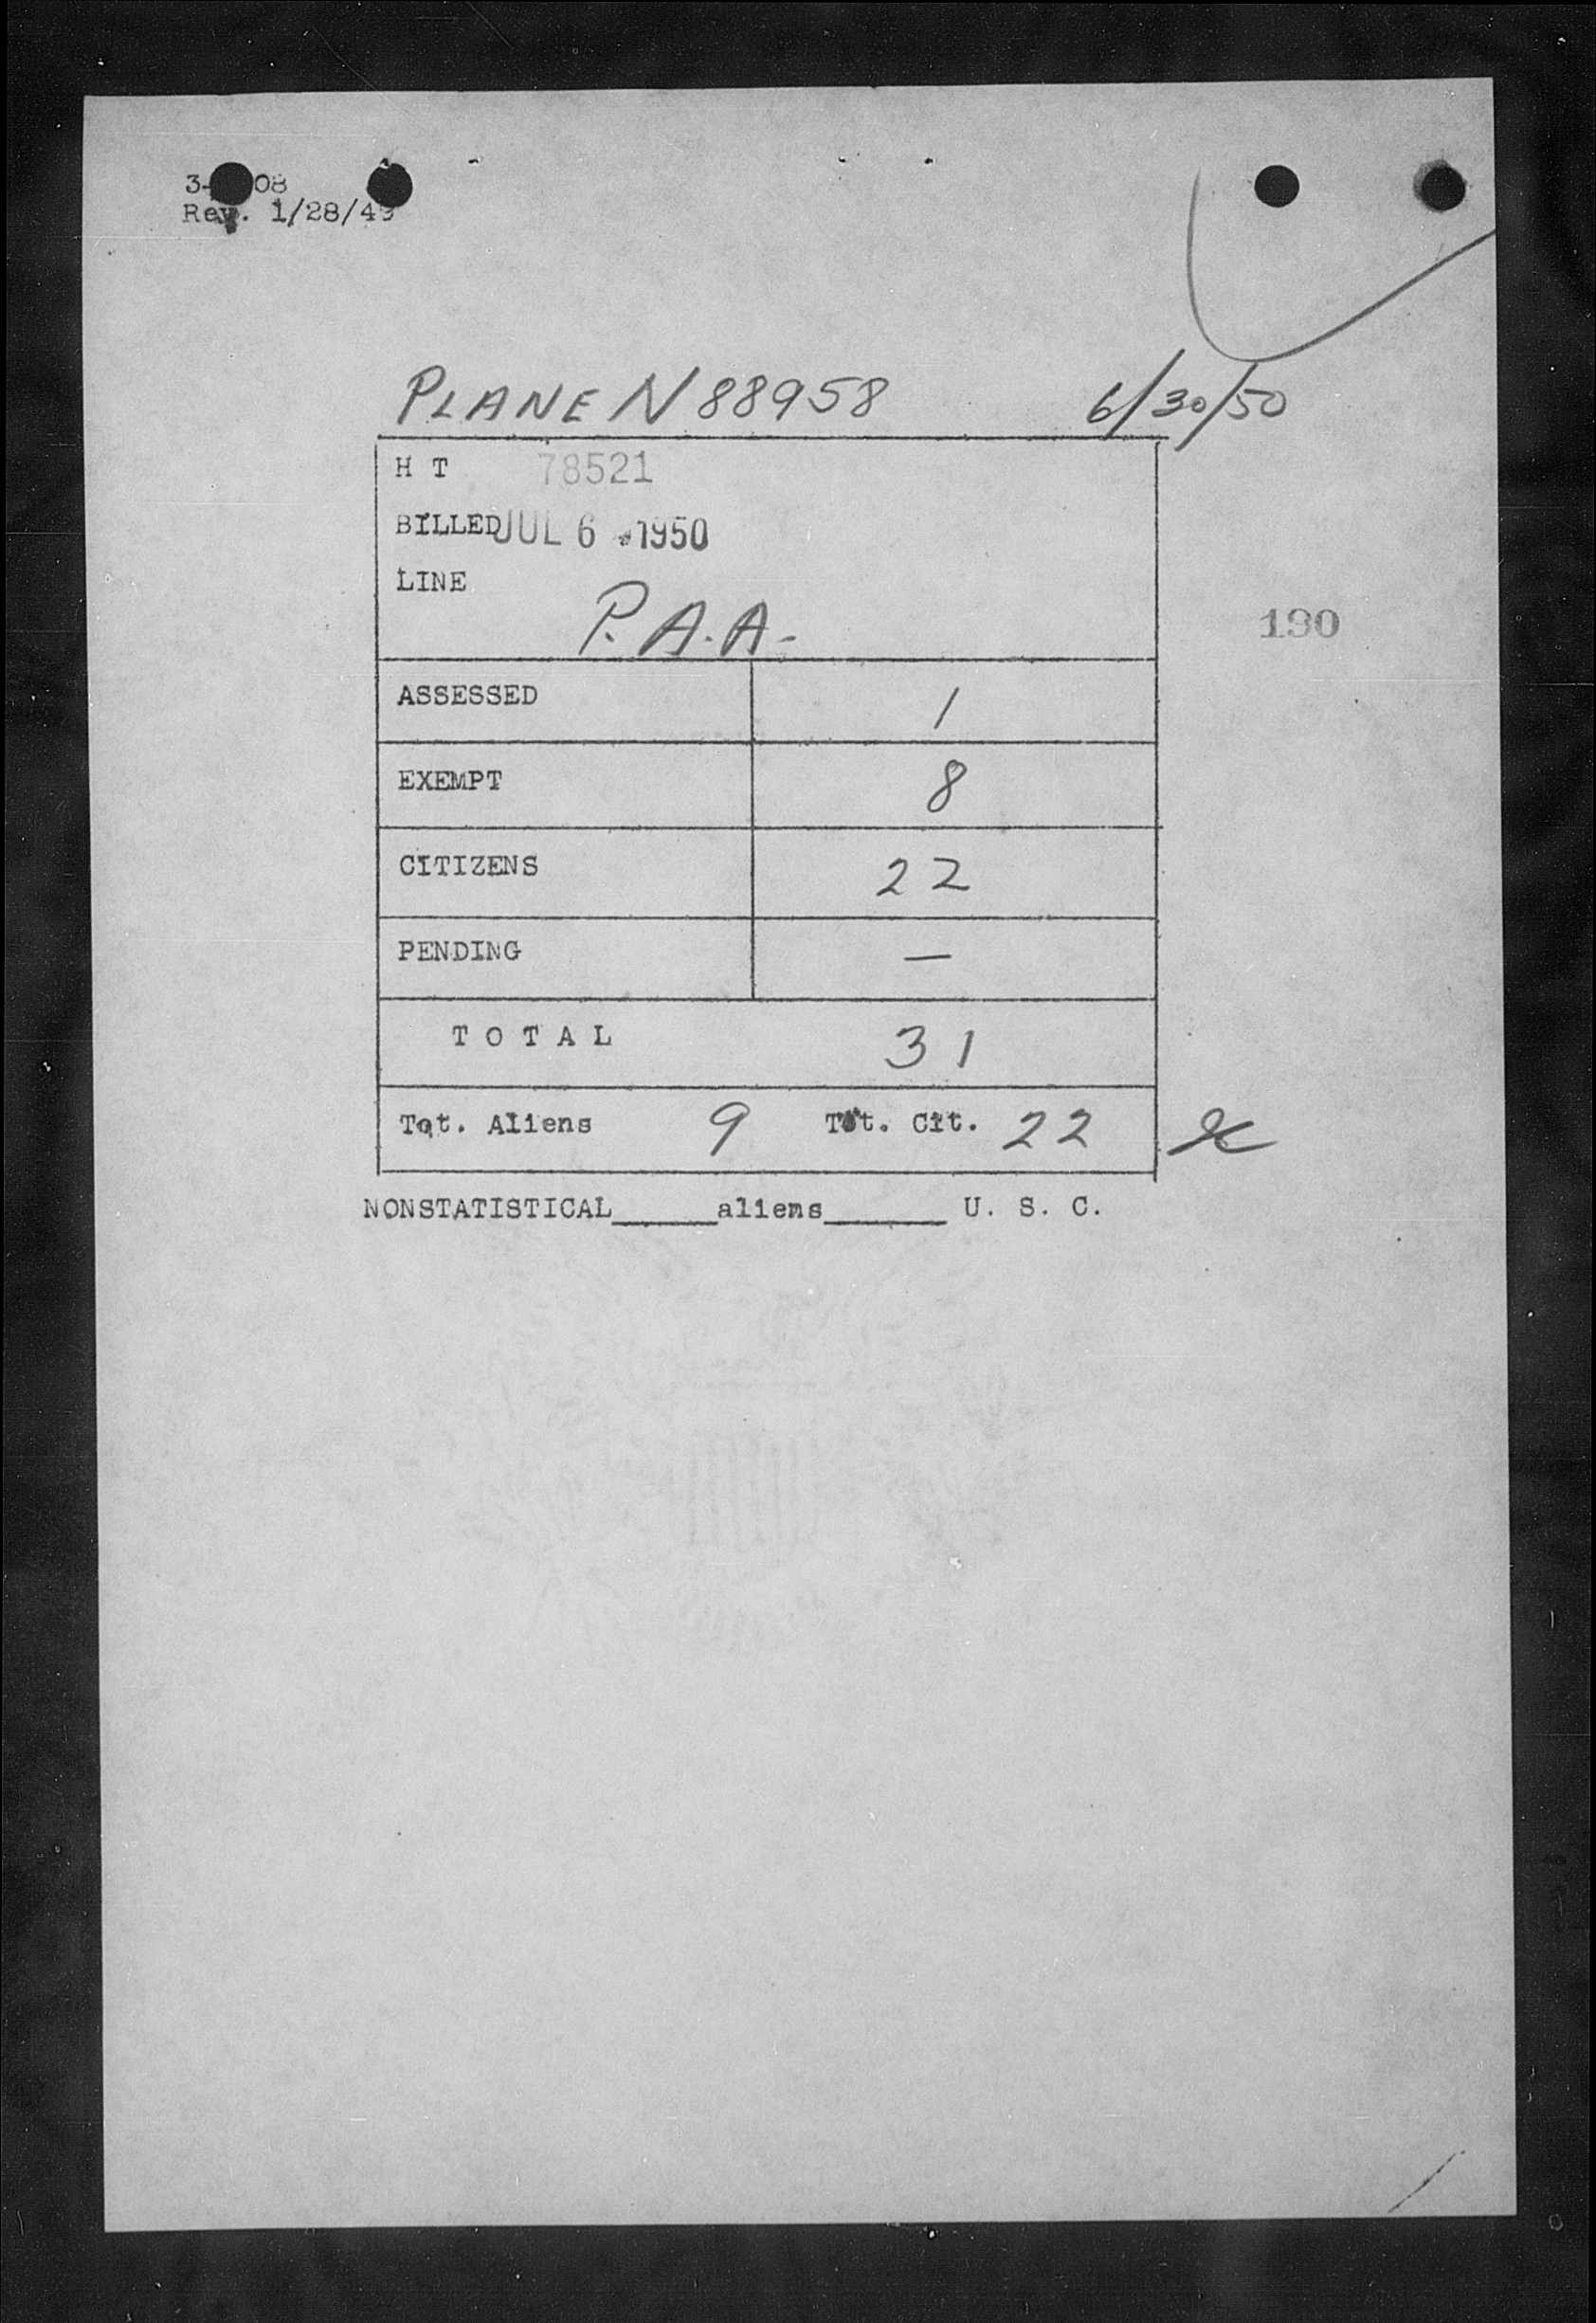 3- 08
Rev. 1/28/49
PLANE N88958 6/30/50
H T 78521
BILLED JUL 6 1950
LINE
P.A.A.
190
ASSESSED 1
EXEMPT 8
CITIZENS 22
PENDING —
TOTAL 31
Tot. Aliens 9 Tot. Cit. 22
NONSTATISTICAL_____aliens______ U. S. C.